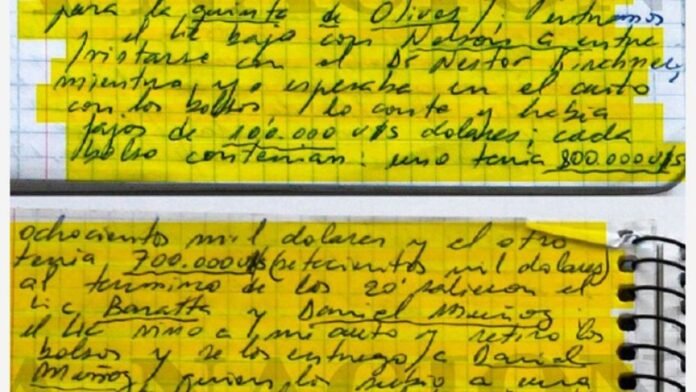 para la quinta de Olivos /. Entramos
el Lic bajo con Nelson a entre
/vistarse con el Dr Nestor Kirchner,
mientras yo esperaba en el auto
con los bolsos / lo conte y habia
fajos de 100.000 u/s dolares; cada
bolso contenian: uno tenia 800.000 u/s
ochocientos mil dolares y el otro
tenia 700.000 u/s (setecientos mil dolares)
al termino de los 20' salieron el
Lic Baratta y Daniel Muñoz
el Lic vino a mi auto y retiro los
bolsos y se los entrego a Daniel
Muñoz / quien los subio a una